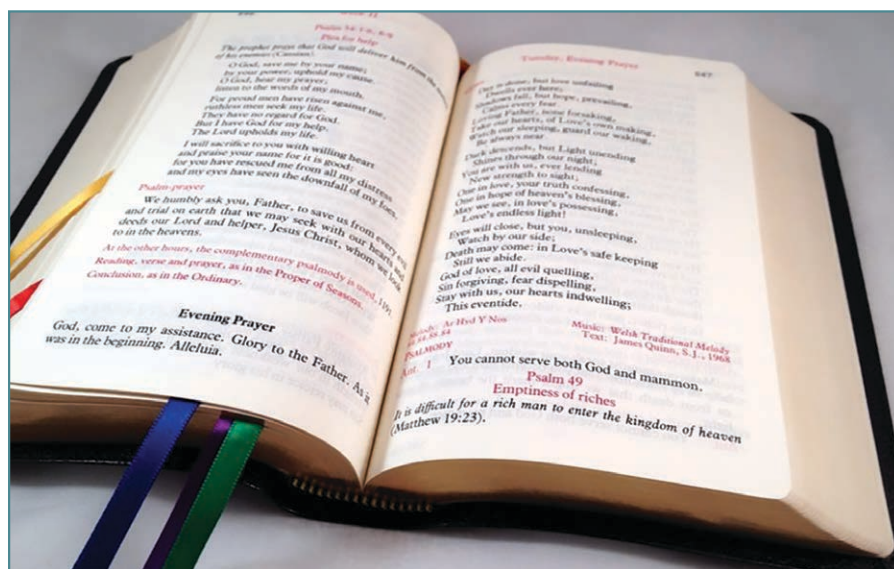 Week II
Psalm 54:1-6, 8-9
Plea for help
The prophet prays that God will deliver him from the
of his enemies (Cassian).
O God, save me by your name;
by your power, uphold my cause.
O God, hear my prayer;
listen to the words of my mouth.
For proud men have risen against me,
ruthless men seek my life.
They have no regard for God.
But I have God for my help.
The Lord upholds my life.
I will sacrifice to you with willing heart
and praise your name for it is good:
for you have rescued me from all my distress
and my eyes have seen the downfall of my foes.
Psalm-prayer
We humbly ask you, Father, to save us from every evil
and trial on earth that we may seek with our hearts and
deeds our Lord and helper, Jesus Christ, whom we look
to in the heavens.
At the other hours, the complementary psalmody is used, 1191.
Reading, verse and prayer, as in the Proper of Seasons.
Conclusion, as in the Ordinary.
Evening Prayer
God, come to my assistance. Glory to the Father. As it
was in the beginning. Alleluia.
Tuesday, Evening Prayer
Day is done, but love unfailing
Dwells ever here;
Shadows fall, but hope, prevailing,
Calms every fear.
Loving Father, none forsaking,
Take our hearts, of Love's own making,
Watch our sleeping, guard our waking,
Be always near.
Dark descends, but Light unending
Shines through our night;
You are with us, ever lending
New strength to sight;
One in love, your truth confessing,
One in hope of heaven's blessing,
May we see, in love's possessing,
Love's endless light!
Eyes will close, but you, unsleeping,
Watch by our side;
Death may come: in Love's safe keeping
Still we abide.
God of love, all evil quelling,
Sin forgiving, fear dispelling,
Stay with us, our hearts indwelling;
This eventide.
Melody: Ar Hyd Y Nos
Music: Welsh Traditional Melody
84.84.88.84
Text: James Quinn, S.J., 1968
PSALMODY
Ant. 1 You cannot serve both God and mammon.
Psalm 49
Emptiness of riches
It is difficult for a rich man to enter the kingdom of heaven
(Matthew 19:23).